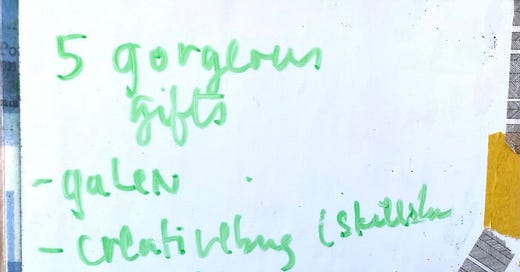 5 gorgerus
gifts
- galen
- creativebug (skillsha